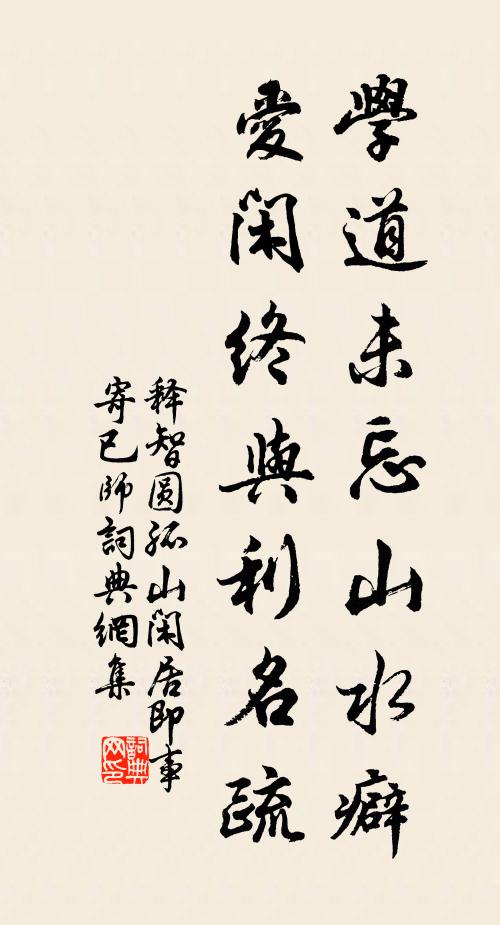 學道未忘山水癖
愛閑終與利名疏
释智圓孤山閑居即事
寄己師詞典網集
詞典網印